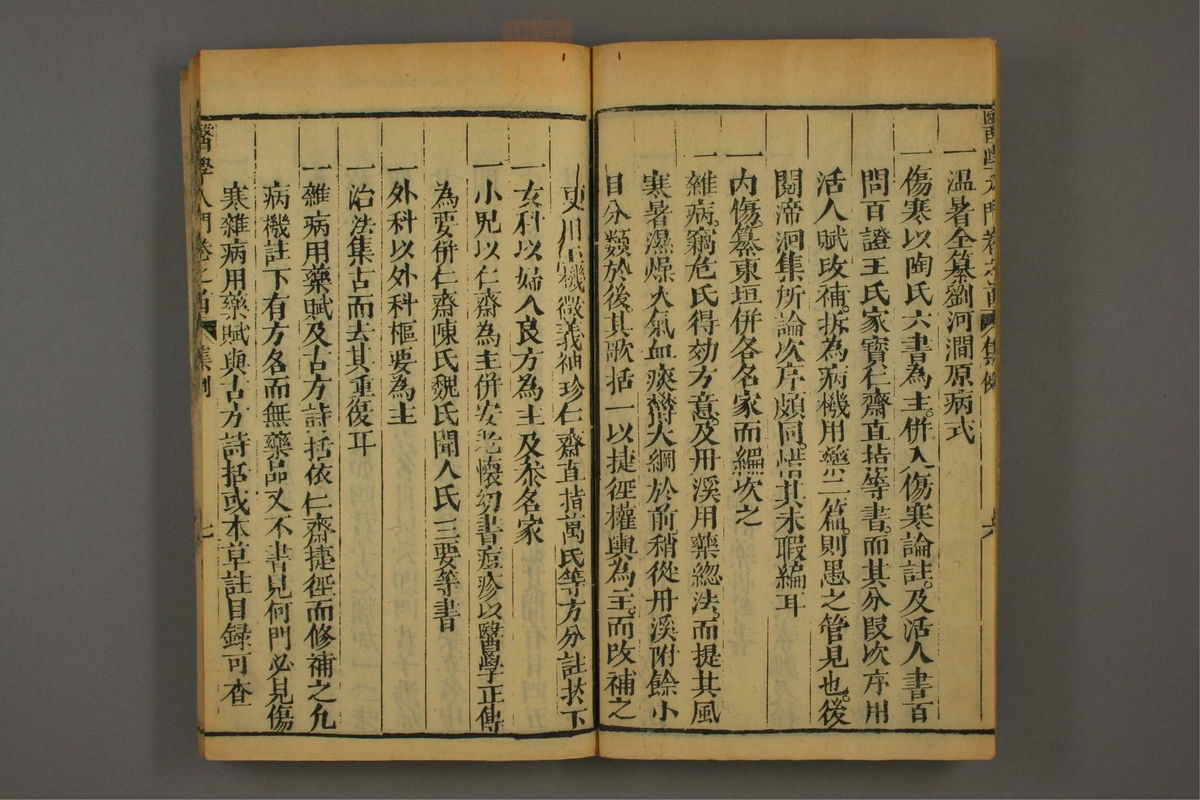 醫學入門卷之首 集例 六
一溫暑全纂劉河澗原病式
一傷寒以陶氏六書為主。併入傷寒論註。及活人書百
問百證王氏家寶仁齋直指等書。而其分段次序用
活人賦改補。拆為病機用藥二篇。則愚之管見也。後
閱蒂洞集所論次序頗同。惜其未暇編耳
一內傷。纂東垣併各名家而編次之
一雜病。竊危氏得効方意。及丹溪用藥總法。而提其風
寒暑濕燥火氣血痰欝大綱於前。稍從丹溪附餘小
目分類於後。其歌括一以捷徑權輿為主。而改補之
更用玉機微義袖珍仁齋直指萬氏等方分註於下
一女科以婦人良方為主及叅名家
一小兒以仁齋為主併安老懷幼書痘疹以醫學正傳
為要併仁齋陳氏魏氏聞人氏三要等書
一外科以外科樞要為主
一治法集古而去其重復耳
一雜病用藥賦及古方詩括依仁齋捷徑而修補之允
病機註下有方名而無藥品又不書見何門必見傷
寒雜病用藥賦與古方詩括或本草註目録可查
醫學入門卷之首 集例 七